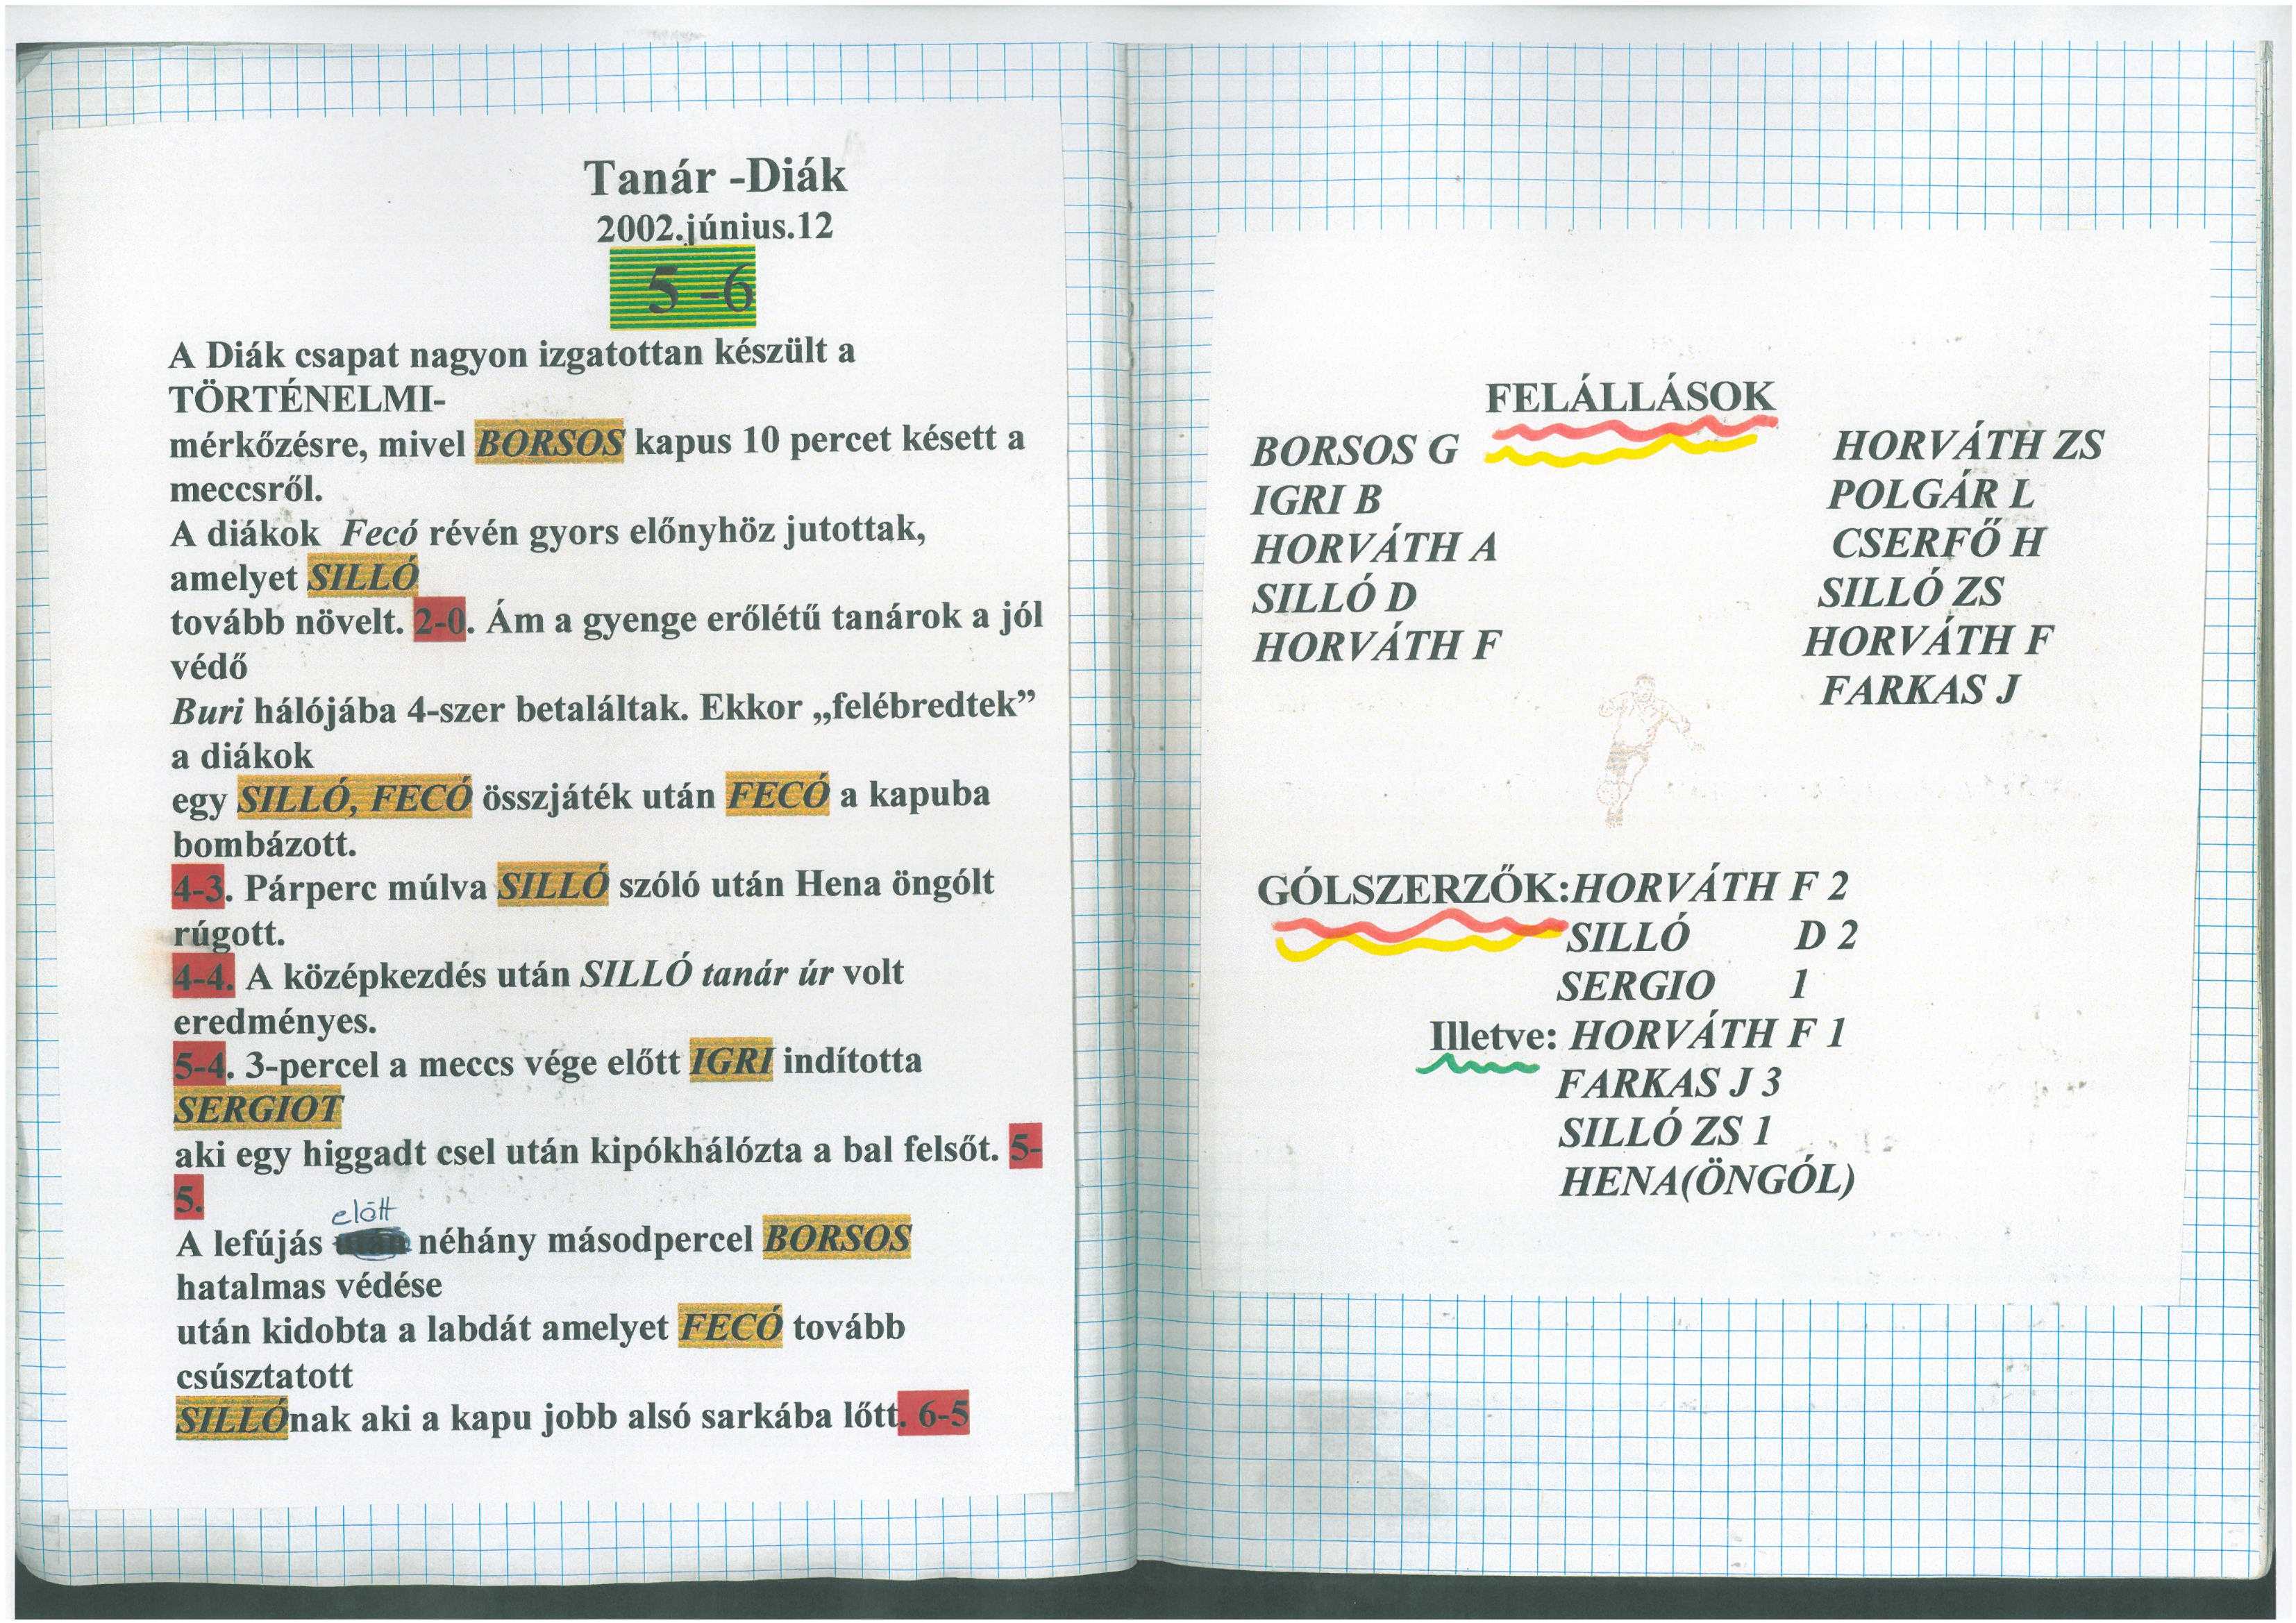 Tanár -Diák
2002.június.12
5 -6
A Diák csapat nagyon izgatottan készült a
TÖRTÉNELMI-
mérkőzésre, mivel BORSOS kapus 10 percet késett a
meccsről.
A diákok Fecó révén gyors előnyhöz jutottak,
amelyet SILLÓ
tovább növelt. 2-0. Ám a gyenge erőlétű tanárok a jól
védő
Buri hálójába 4-szer betaláltak. Ekkor „felébredtek”
a diákok
egy SILLÓ, FECÓ összjáték után FECÓ a kapuba
bombázott.
4-3. Párperc múlva SILLÓ szóló után Hena öngólt
rúgott.
4-4. A középkezdés után SILLÓ tanár úr volt
eredményes.
5-4. 3-percel a meccs vége előtt IGRI indította
SERGIOT
aki egy higgadt csel után kipókhálózta a bal felsőt. 5-
5.
előtt
A lefújás után néhány másodpercel BORSOS
hatalmas védése
után kidobta a labdát amelyet FECÓ tovább
csúsztatott
SILLÓnak aki a kapu jobb alsó sarkába lőtt. 6-5
FELÁLLÁSOK
BORSOS G
IGRI B
HORVÁTH A
SILLÓ D
HORVÁTH F
HORVÁTH ZS
POLGÁR L
CSERFŐ H
SILLÓ ZS
HORVÁTH F
FARKAS J
GÓLSZERZŐK:HORVÁTH F 2
SILLÓ D 2
SERGIO 1
Illetve: HORVÁTH F 1
FARKAS J 3
SILLÓ ZS 1
HENA(ÖNGÓL)